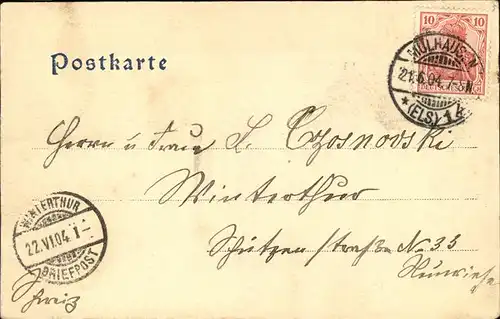 Postkarte
10 10
MÜLHAUSEN
21.6.04. 7-8N.
* (ELS) 1 k
Herrn u Frau L. Czosnovski
Winterthur
WINTERTHUR
22.VI.04. 1-
BRIEFPOST
Schützenstraße No 33
Schweiz